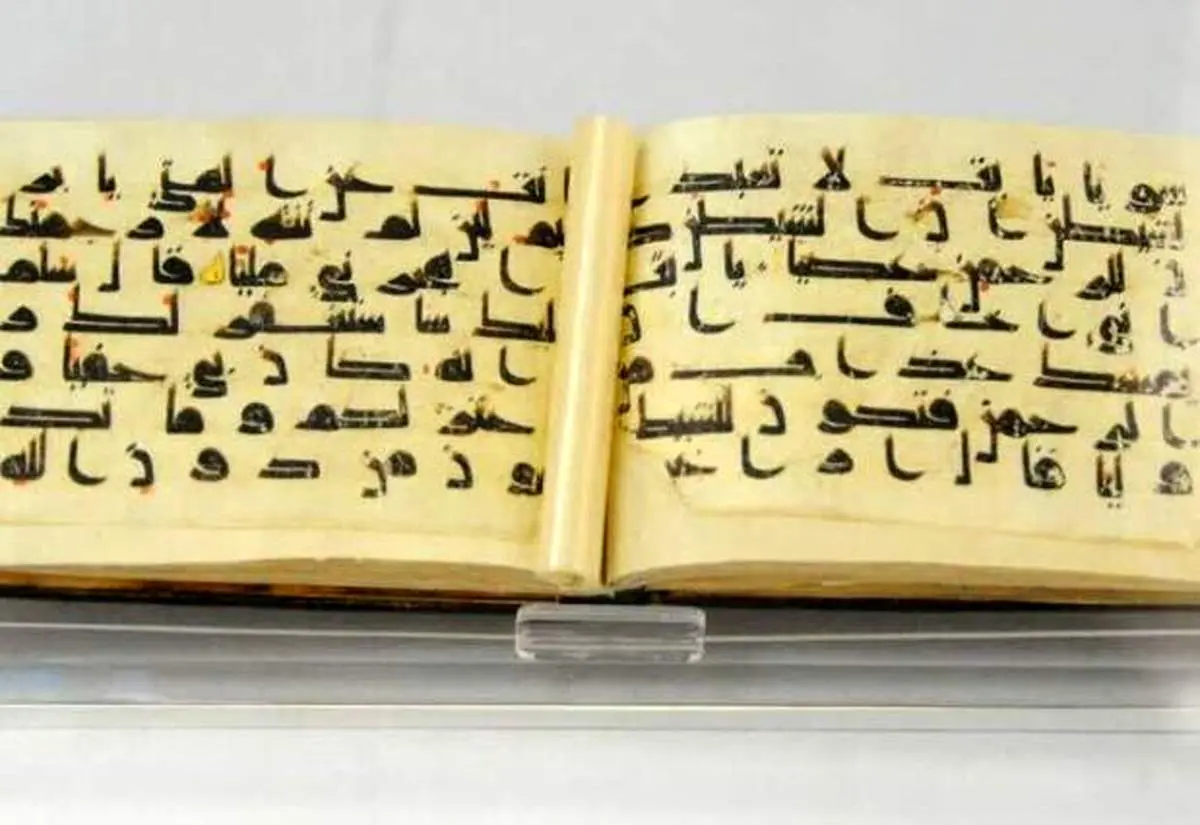 سويا يابت لا تعبد
الشيطن ان الشيطن كا
ن للرحمن عصيا يابت
اني اخاف ان
يمسك عذاب م
ن الرحمن فتكون للشيطن
وليا قال اراغب
انت عن الهتي يابر
هيم لين لم تنته لارجمنك
واهجرني مليا قال سلم
عليك ساستغفر لك
ربي انه كان بي حفيا و
اعتزلكم وما تد
عون من دون الله